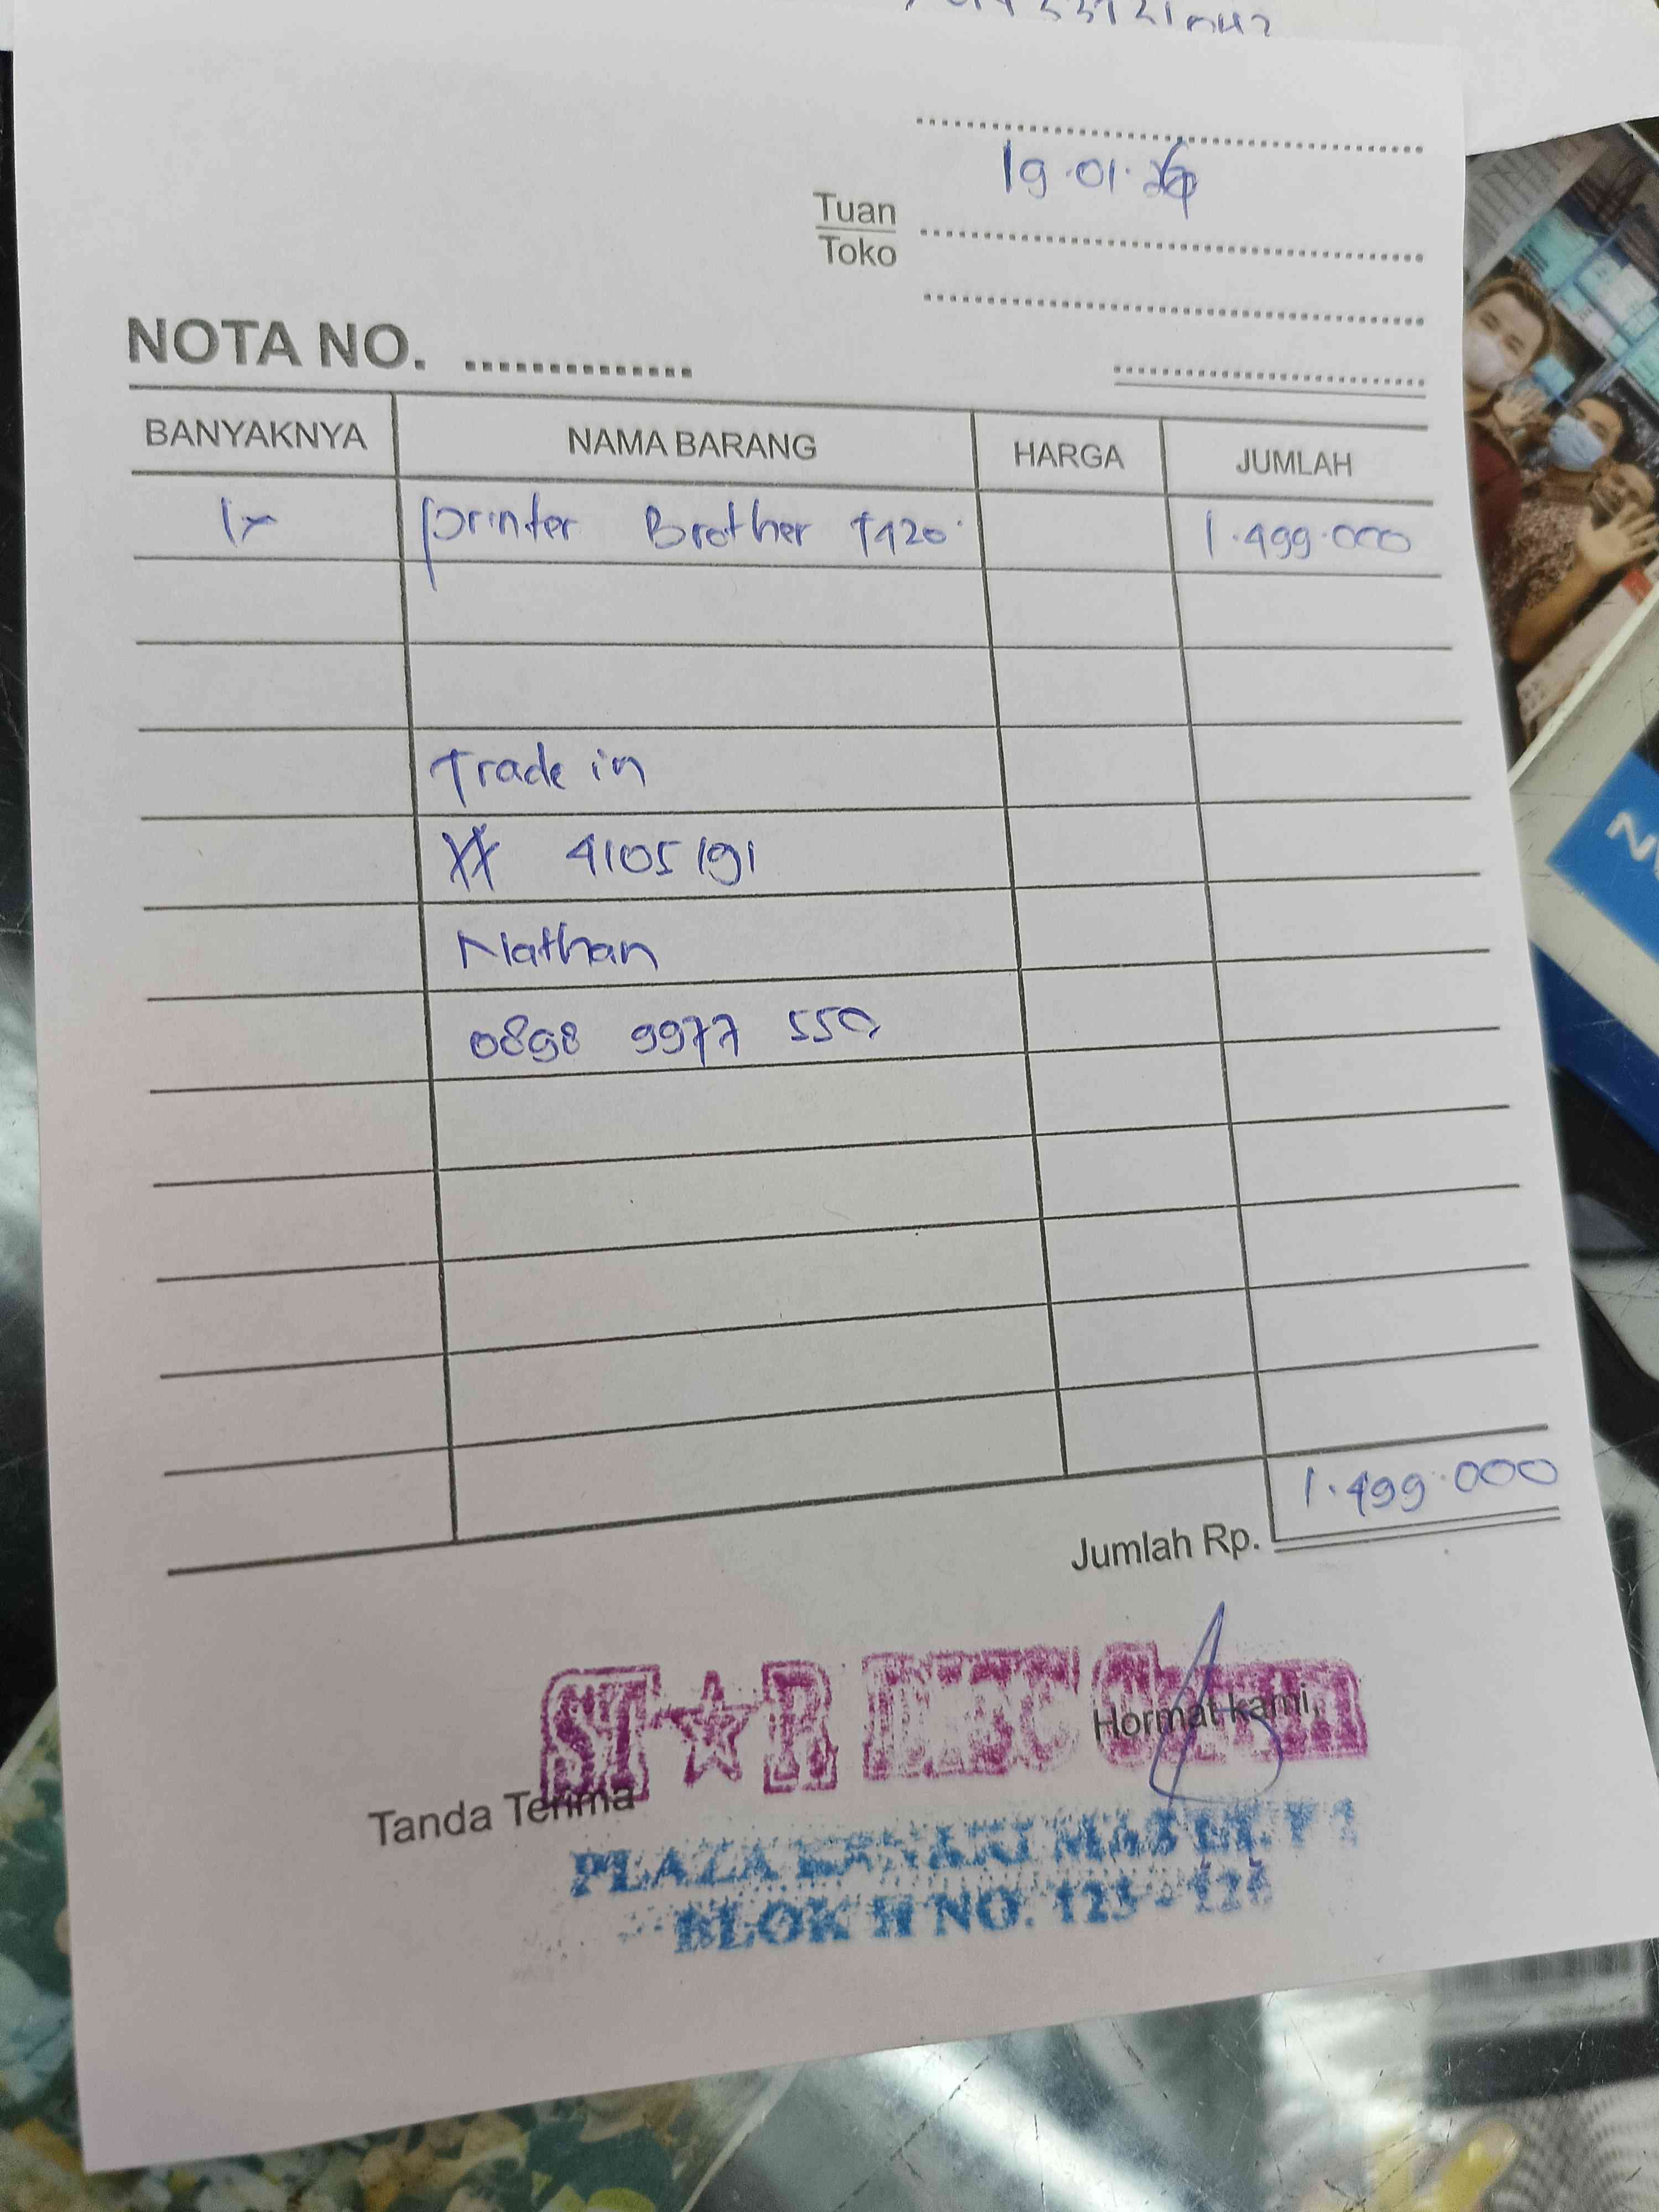 19.01.
Tuan
Toko
NOTA NO.
BANYAKNYA NAMA BARANG HARGA JUMLAH
1x printer Brother T420 1.499.000
Trade in
4105191
Nathan
0898 9977 550
1.499.000
Jumlah Rp.
ST★R
Hormat kami,
Tanda Terima
PLAZA KENARI MAS LT.
BLOK H NO. 123 - 126